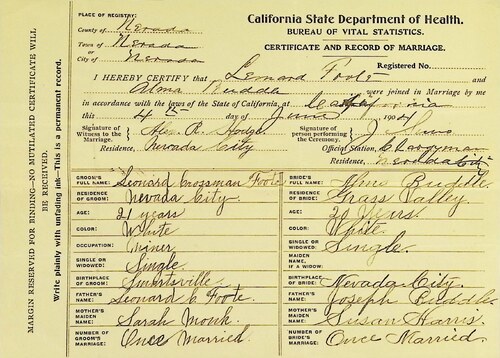 PLACE OF REGISTRY:
County of Nevada
Town of Nevada
or
City of Nevada
California State Department of Health.
BUREAU OF VITAL STATISTICS.
CERTIFICATE AND RECORD OF MARRIAGE.
Registered No.
I HEREBY CERTIFY that Leonard Foote and
Alma Buddle were joined in Marriage by me
in accordance with the laws of the State of California, at California
this 4th day of June 1904
Signature of Witness to the Marriage. Alex. R. Hodge
Signature of person performing the Ceremony. J
Residence, Nevada City
Official Station, Clergyman
Residence, Nevada City
MARGIN RESERVED FOR BINDING—NO MUTILATED CERTIFICATE WILL BE RECEIVED.
Write plainly with unfading ink—This is a permanent record.
GROOM'S FULL NAME: Leonard Crossman Foote
RESIDENCE OF GROOM: Nevada City
AGE: 21 years
COLOR: White
OCCUPATION: Miner
SINGLE OR WIDOWED: Single
BIRTHPLACE OF GROOM: Smartsville
FATHER'S NAME: Leonard C. Foote
MOTHER'S MAIDEN NAME: Sarah Monk
NUMBER OF GROOM'S MARRIAGE: Once Married.
BRIDE'S FULL NAME: Alma Buddle
RESIDENCE OF BRIDE: Grass Valley.
AGE: 20 Years.
COLOR: White.
SINGLE OR WIDOWED: Single.
MAIDEN NAME, IF A WIDOW:
BIRTHPLACE OF BRIDE: Nevada City.
FATHER'S NAME: Joseph Buddle
MOTHER'S MAIDEN NAME: Susan Harris.
NUMBER OF BRIDE'S MARRIAGE: Once Married.